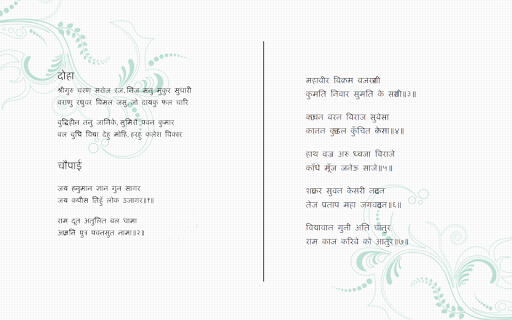 दोहा
श्रीगुरु चरण सरोज रज, निज मनु मुकुर सुधारी
बरणु रघुवर बिमल जसु, जो दायकु फल चारि
बुद्धिहीन तनु जानिके, सुमिरौ पवन कुमार
बल बुधि विद्या देहु मोहि, हरहु कलेश विकार
चौपाई
जय हनुमान ज्ञान गुन सागर
जय कपीस तिहुँ लोक उजागर॥१॥
राम दूत अतुलित बल धामा
अंजनि पुत्र पवनसुत नामा॥२॥
महावीर विक्रम बजरंगी
कुमति निवार सुमति के संगी॥३॥
कंचन बरन विराज सुवेसा
कानन कुंडल कुँचित केसा॥४॥
हाथ वज्र अरु ध्वजा विराजे
काँधे मूँज जनेऊ साजे॥५॥
शंकर सुवन केसरी नंदन
तेज प्रताप महा जगवंदन॥६॥
विद्यावान गुनी अति चातुर
राम काज करिवे को आतुर॥७॥